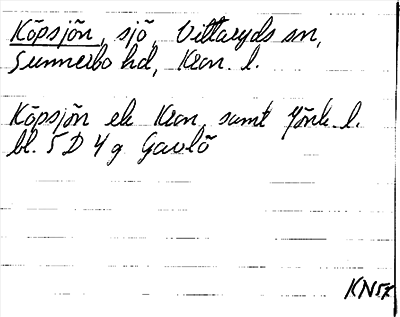 Köpsjön, sjö, Vittaryds sn,
Sunnerbo hd, Kron. l.
Köpsjön ek Kron. samt Jönk. l.
bl. 5 D 4 g Gavlö
KN57